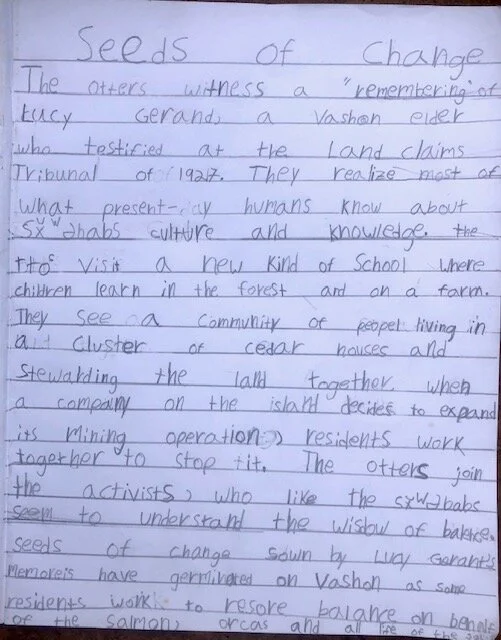 Seeds of Change
The otters witness a "remembering" of
Lucy Gerand, a Vashon elder
who testified at the Land claims
Tribunal of 1927. They realize most of
what present-day humans know about
sxʷəbabs culture and knowledge. the
tto visit a new kind of School where
children learn in the forest and on a farm.
They see a community of peopel living in
a cluster of cedar houses and
stewarding the land together. when
a company on the island decides to expand
its mining operation, residents work
together to stop tit. The otters join
the activists, who like the sxʷəbabs
seem to understand the wisdow of
seeds of change sown by Lucy Gerand's
Memoreis have germinated on Vashon as some
residents work to resore balance on behalf
of the salmon, orcas and all life of the